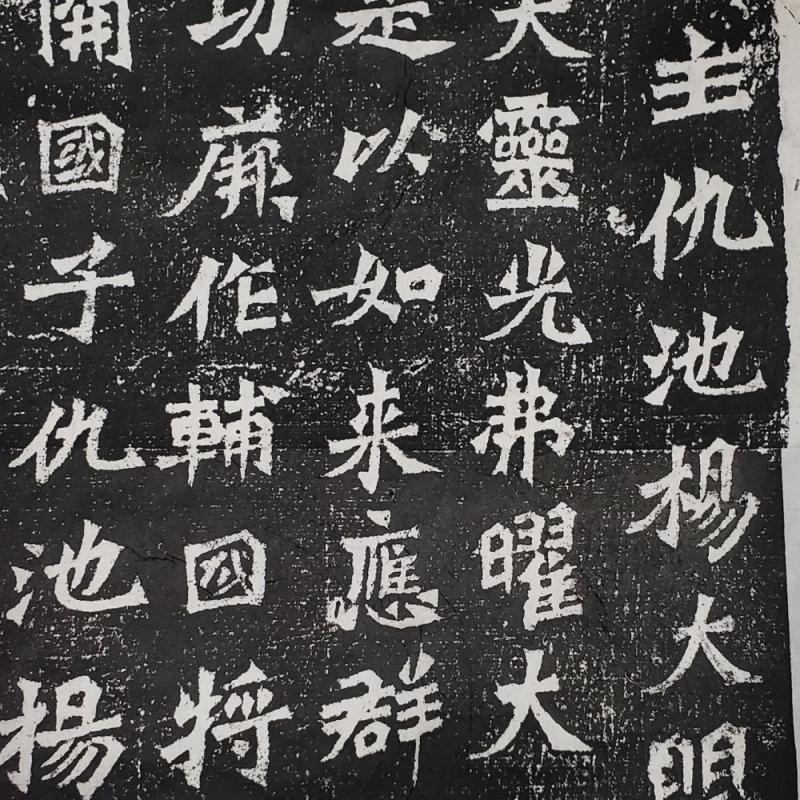 主仇池楊大眼
夫靈光弗曜大
是以如来應群
功厥作輔國将
開國子仇池楊